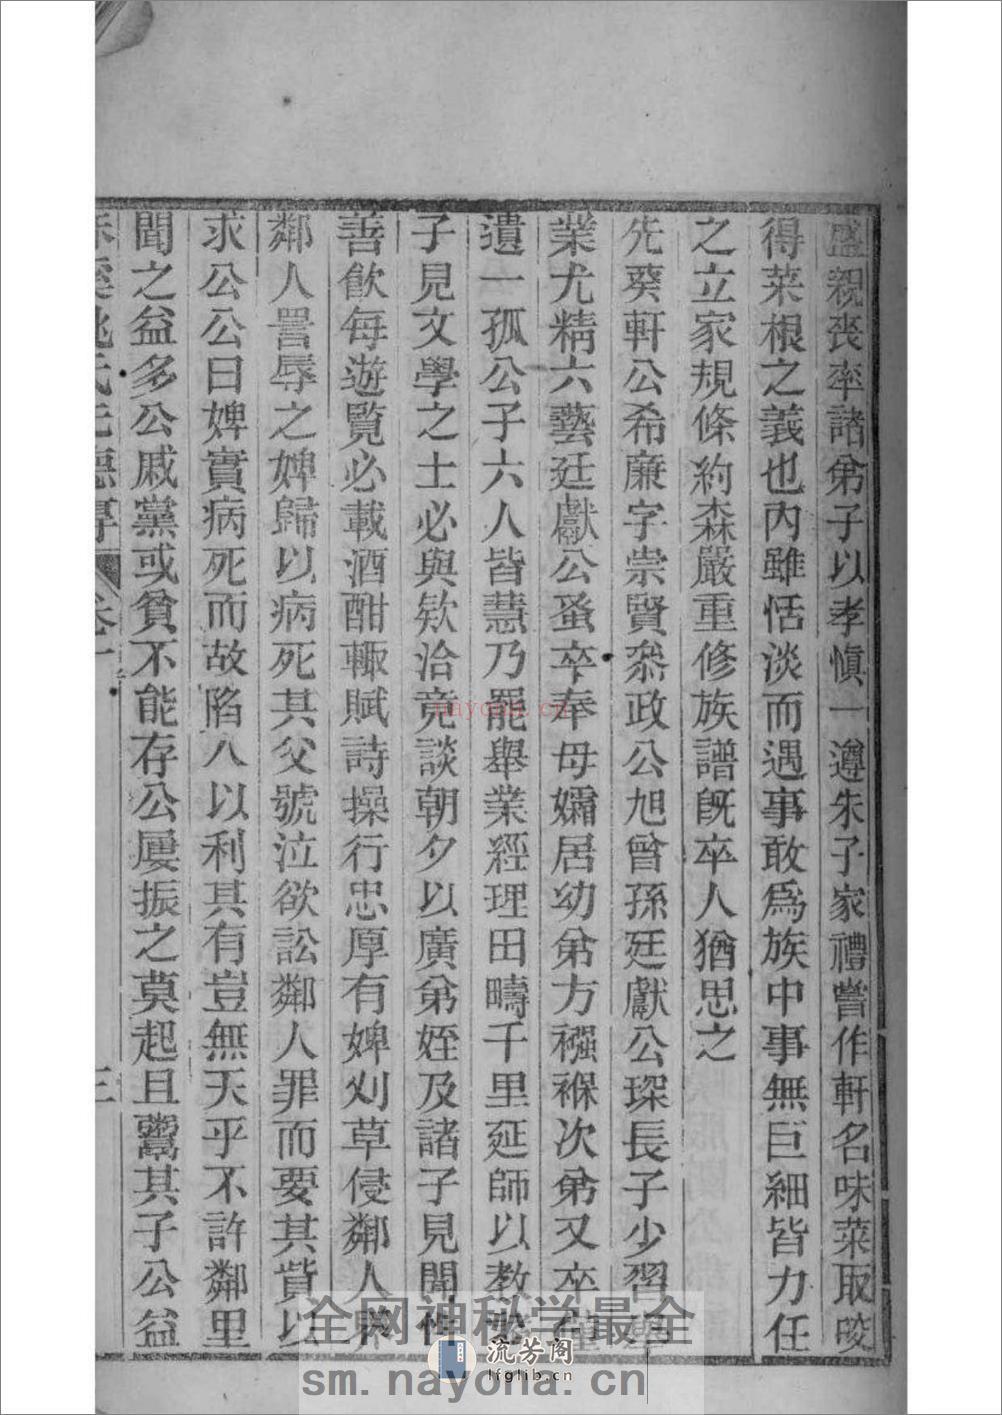 盛親喪率諸弟子以孝愼一遵朱子家禮嘗作軒名味菜取咬
得菜根之義也內雖恬淡而遇事敢爲族中事無巨細皆力任
之立家規條約森嚴重修族譜旣卒人猶思之
先葵軒公希廉字崇賢叅政公旭曾孫廷獻公琛長子少習
業尤精六藝廷獻公蚤卒奉母孀居幼弟方襁褓次弟又卒
遺一孤公子六人皆慧乃罷舉業經理田疇千里延師以教
子見文學之士必與欵洽竟談朝夕以廣弟姪及諸子見聞
善飮每遊覽必載酒酣輙賦詩操行忠厚有婢刈草侵鄰人
鄰人詈辱之婢歸以病死其父號泣欲訟鄰人罪而要其貲以
求公公曰婢實病死而故陷人以利其有豈無天乎不許鄰里
聞之益多公戚黨或貧不能存公屢振之莫起且鬻其子公益
姚氏先德傳 卷一 三
nayona.cn
全网神秘学最全
流芳阁
lfglib.cn
sm.nayona.cn